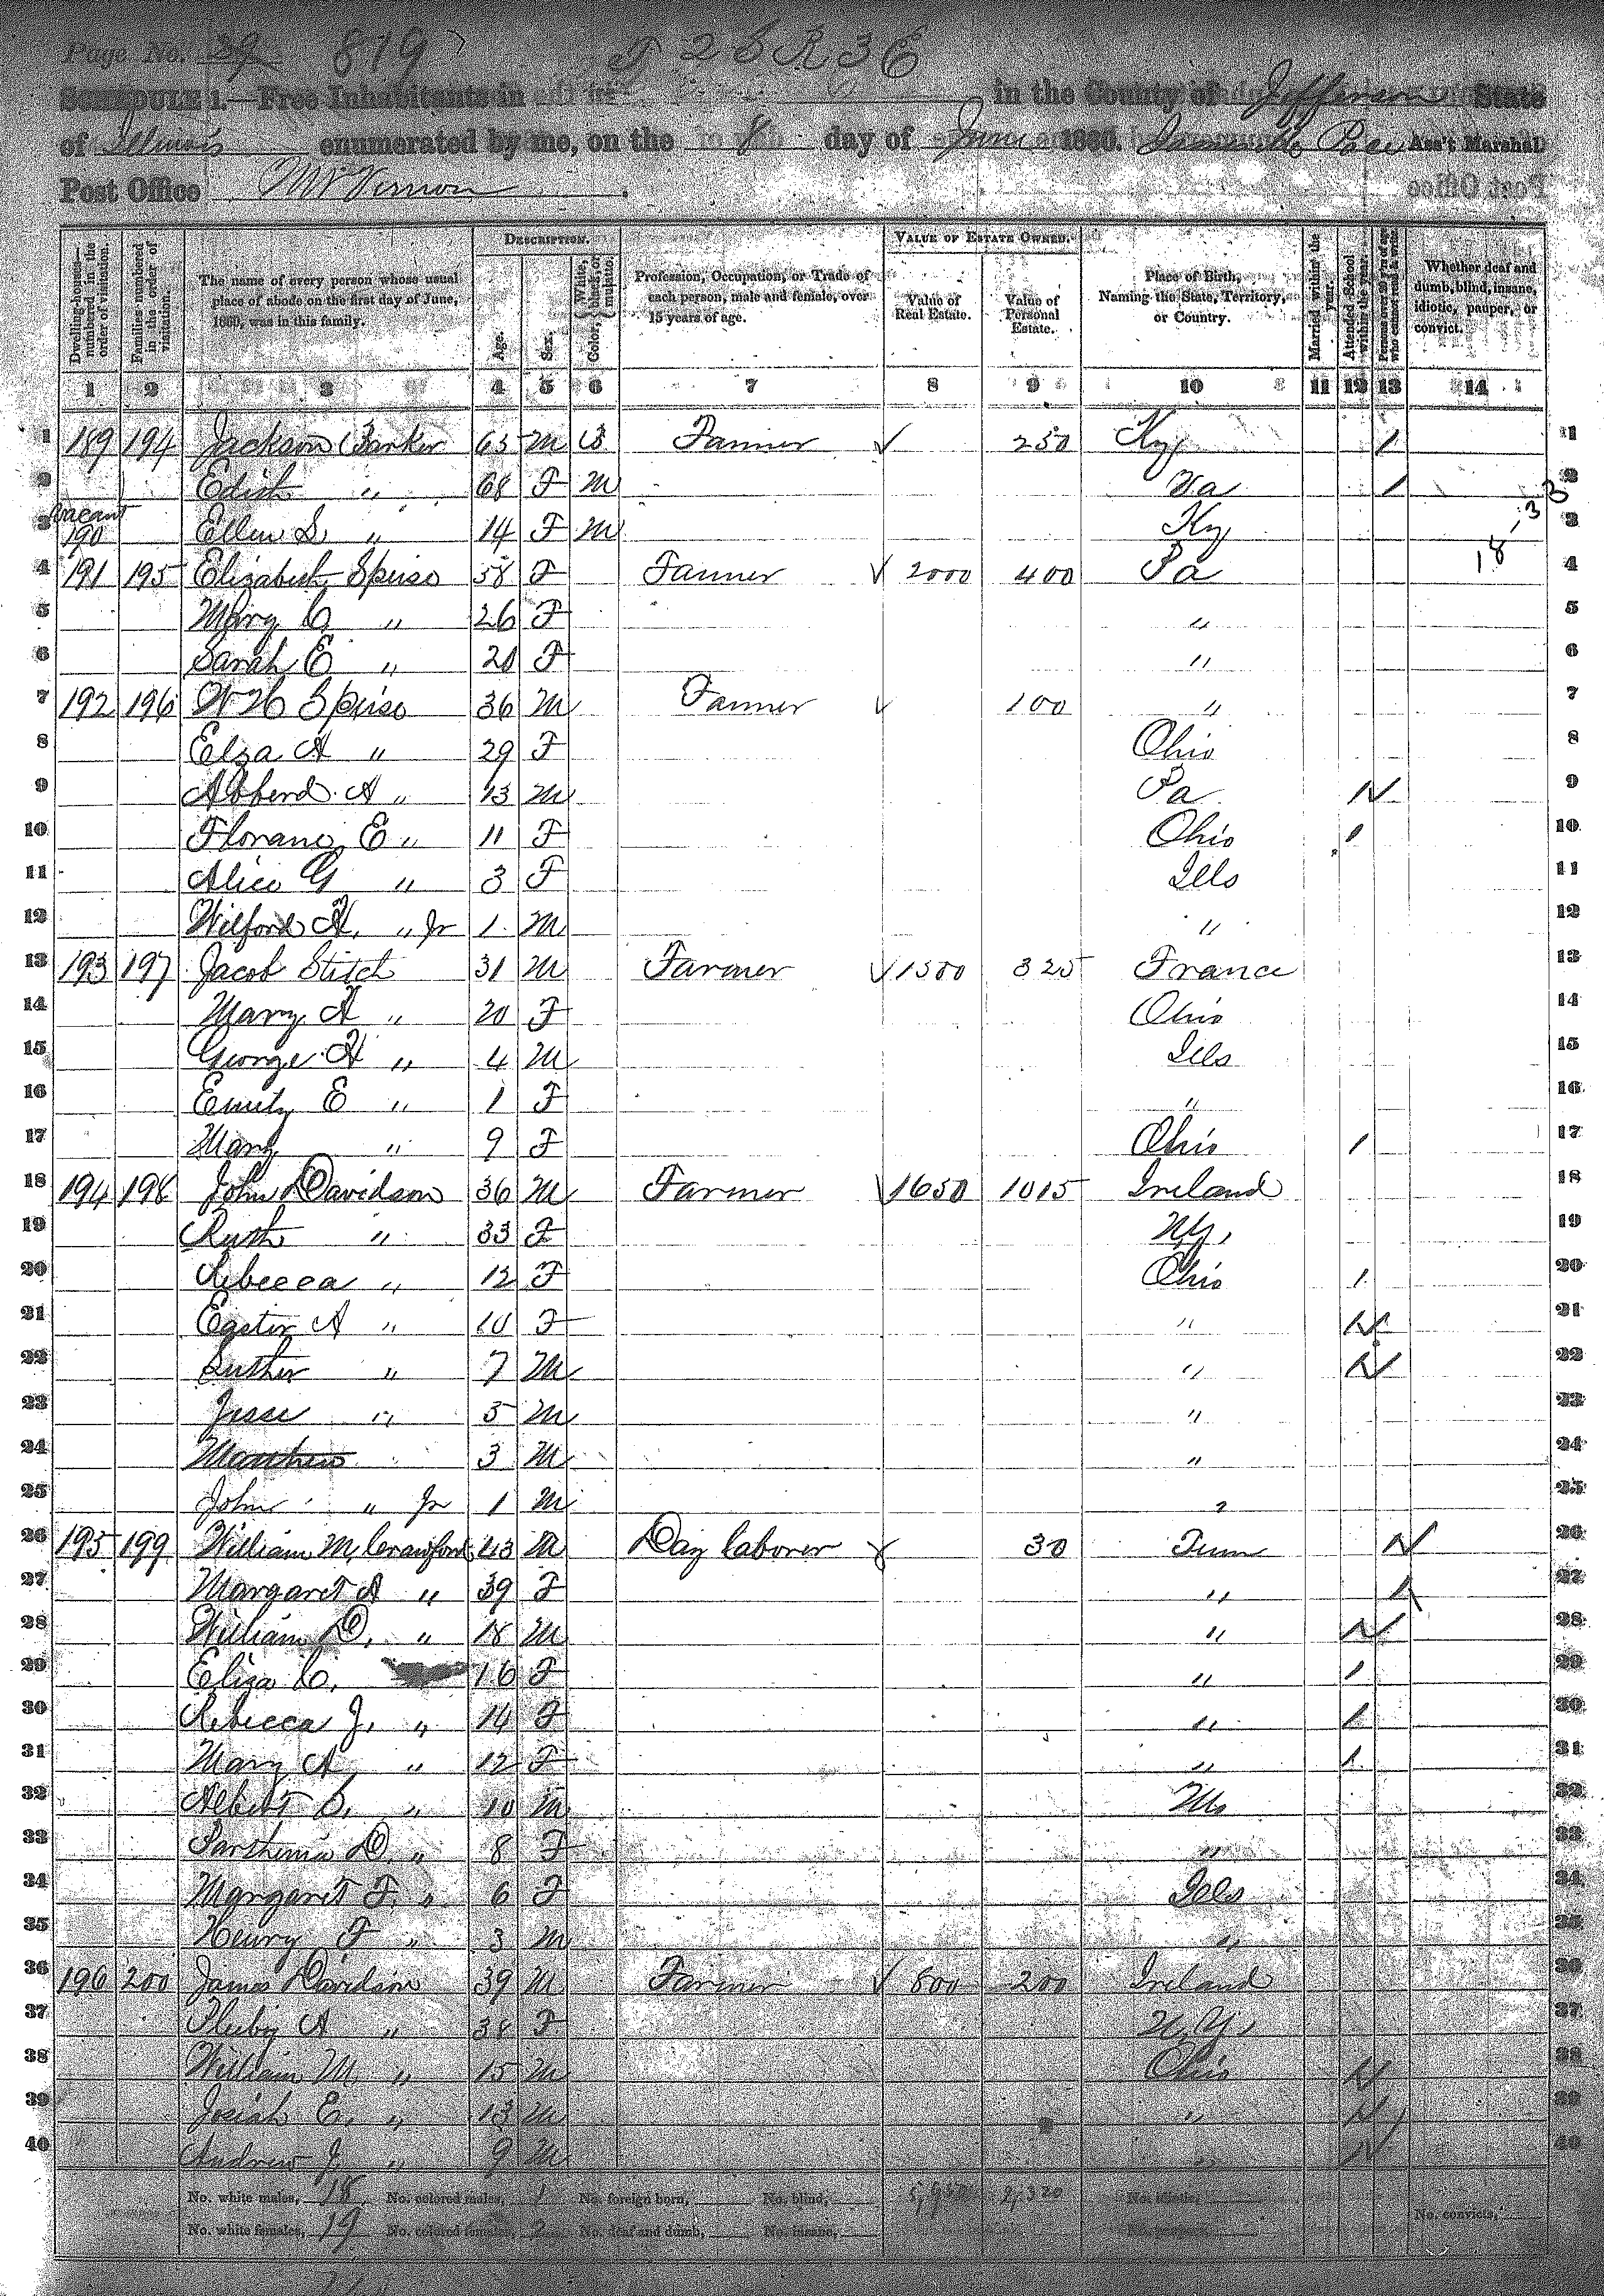 Page No. 29 819 T 2 S R 3 E
SCHEDULE 1.—Free Inhabitants in in the County of Jefferson State
of Illinois enumerated by me, on the 8 day of June 1860. Pace Ass't Marshal
Post Office Mt Vernon
Dwelling-houses—numbered in the order of visitation. Families numbered in the order of visitation. The name of every person whose usual place of abode on the first day of June, 1860, was in this family. DESCRIPTION. Age. Sex. Color, White, black, or mulatto. Profession, Occupation, or Trade of each person, male and female, over 15 years of age. VALUE OF ESTATE OWNED. Value of Real Estate. Value of Personal Estate. Place of Birth, Naming the State, Territory, or Country. Married within the year. Attended School within the year. Persons over 20 y'rs of age who cannot read & write. Whether deaf and dumb, blind, insane, idiotic, pauper, or convict.
1 2 3 4 5 6 7 8 9 10 11 12 13 14
1 189 194 Jackson Barker 65 M B Farmer 250 Ky / 1
2 Edith " 68 F M Va / 2
3 vacant 190 Ellen S. " 14 F M Ky 3
4 191 195 Elizabeth 58 F Farmer 2000 400 Pa 18-33 4
5 Mary C. " 26 F " 5
6 Sarah E " 20 F " 6
7 192 196 W H 36 M Farmer 100 " 7
8 Elza A " 29 F Ohio 8
9 A " 13 M Pa / 9
10 E " 11 F Ohio / 10
11 Alice G " 3 F Ills 11
12 Wilford H. " Jr 1 M " 12
13 193 197 Jacob Stitch 31 M Farmer 1500 325 France 13
14 Mary A " 20 F Ohio 14
15 George H " 4 M Ills 15
16 Emily E " 1 F " 16
17 Mary " 9 F Ohio / 17
18 194 198 John Davidson 36 M Farmer 1650 1015 Ireland 18
19 Ruth " 33 F N.Y. 19
20 Rebecca " 12 F Ohio / 20
21 Easter A " 10 F " / 21
22 Luther " 7 M " / 22
23 Jesse " 5 M " 23
24 Matthew 3 M " 24
25 John " Jr 1 M " 25
26 195 199 William M. Crawford 43 M Day laborer 30 Tenn / 26
27 Margaret A " 39 F " / 27
28 William D. " 18 M " / 28
29 Eliza C. 16 F " / 29
30 Rebecca J. " 14 F " / 30
31 Mary A " 12 F " / 31
32 Albert S. " 10 M Mo 32
33 D. " 8 F " 33
34 Margaret F. " 6 F Ills 34
35 Henry F " 3 M " 35
36 196 200 James Davidson 39 M Farmer 800 200 Ireland 36
37 A " 38 F N.Y. 37
38 William M. " 15 M Ohio / 38
39 Josiah E. " 13 M " / 39
40 Andrew J. " 9 M " / 40
No. white males, 18 No. colored males, 1 No. foreign born, No. blind, 5,950 2,320 No. idiotic, No. convicts,
No. white females, 19 No. colored females, 2 No. deaf and dumb, No. insane, No. paupers,